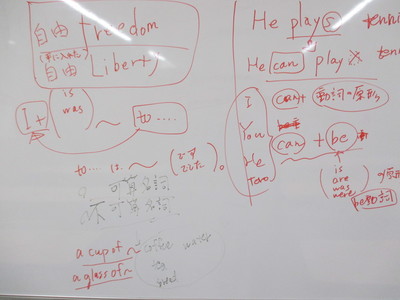 自由 freedom
自由 Liberty
It is was ~ to ....
to .... は、~ (です でした)。
可算名詞
不可算名詞
a cup of ~ coffee water
a glass of ~
He plays tennis
He can play
I can + 動詞の原形
You
He can + be
Taro
is
are
was
were
be動詞